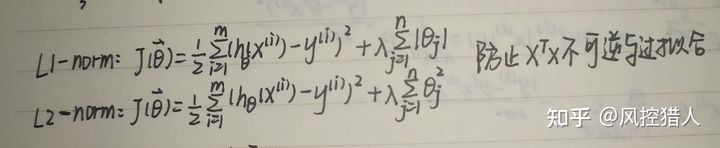 L1-norm: J(θ⃗) = ½ ∑_{i=1}^{m} (h_θ(x^{(i)}) - y^{(i)})² + λ ∑_{j=1}^{n} |θ_j| 防止 XᵀX 不可逆与过拟合
L2-norm: J(θ⃗) = ½ ∑_{i=1}^{m} (h_θ(x^{(i)}) - y^{(i)})² + λ ∑_{j=1}^{n} θ_j²
知乎 @风控猎人